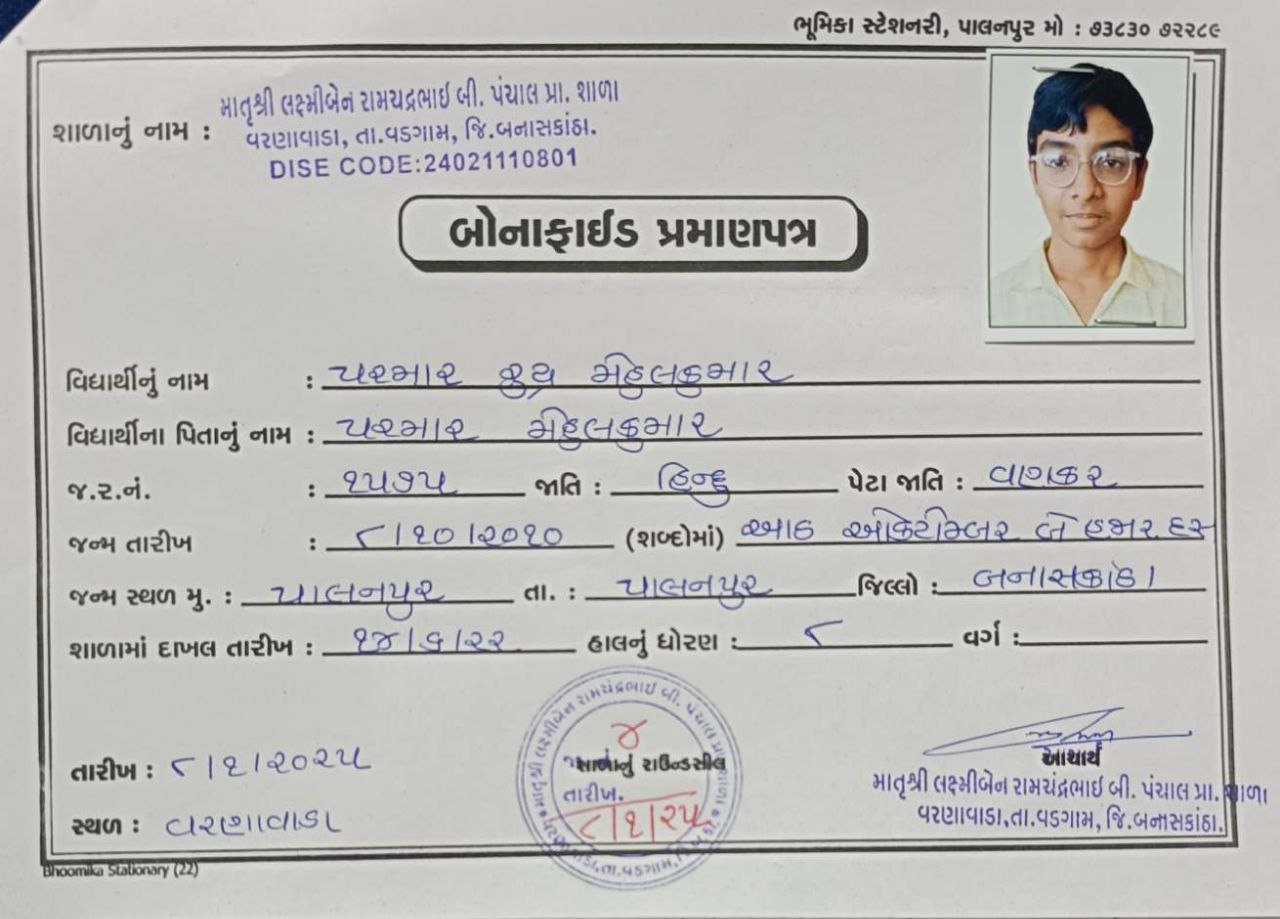 ભૂમિકા સ્ટેશનરી, પાલનપુર મો : ૭૩૮૩૦ ૭૨૨૮૯
માતૃશ્રી લક્ષ્મીબેન રામચદ્રભાઇ બી. પંચાલ પ્રા. શાળા
શાળાનું નામ : વરણાવાડા, તા.વડગામ, જિ.બનાસકાંઠા.
DISE CODE:24021110801
બોનાફાઈડ પ્રમાણપત્ર
વિદ્યાર્થીનું નામ : પરમાર મેહુલકુમાર
વિદ્યાર્થીના પિતાનું નામ : પરમાર મેહુલકુમાર
જ.ર.નં. : ૧૫૭૫ જાતિ : હિન્દુ પેટા જાતિ : વણકર
જન્મ તારીખ : ૮/૧૦/૨૦૧૦ (શબ્દોમાં) આઠ ઓક્ટોમ્બર બે હજાર દસ
જન્મ સ્થળ મુ. : પાલનપુર તા. : પાલનપુર જિલ્લો : બનાસકાંઠા
શાળામાં દાખલ તારીખ : ૧૪/૬/૨૨ હાલનું ધોરણ : ૮ વર્ગ :
માતૃશ્રી લક્ષ્મીબેન રામચંદ્રભાઇ બી. પંચાલ પ્રા. શાળા
૪
શાળાનું રાઉન્ડસીલ
તારીખ.
૮/૧/૨૫
તારીખ : ૮/૧/૨૦૨૫
સ્થળ : વરણાવાડા
આચાર્ય
માતૃશ્રી લક્ષ્મીબેન રામચંદ્રભાઇ બી. પંચાલ પ્રા. શાળા
વરણાવાડા,તા.વડગામ, જિ.બનાસકાંઠા.
Bhoomika Stationary (22)